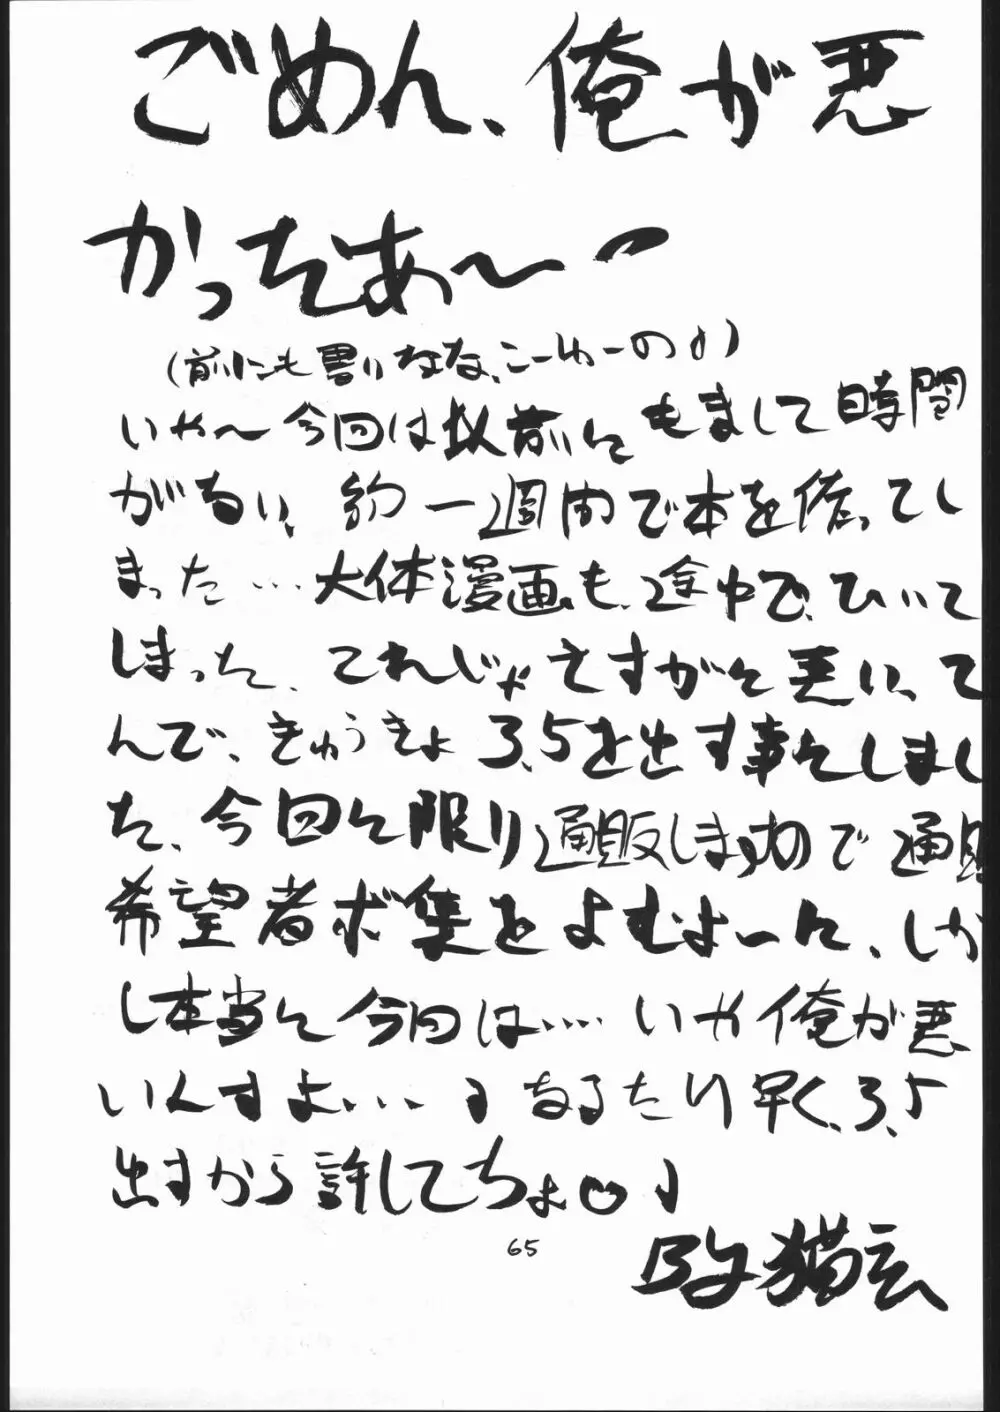 ごめん、俺が悪
かったあ〜ー
(前にも書いたな、こーゆーの♪)
いや〜今回は以前にもまして時間
がない、約一週間で本を作ってし
まった…大体漫画も、途中で、ひいて
しまった、てれじゃさすがに悪い、て
んで、きゅうきょ3、5を出す事にしまし
た、今回に限り通販しますので通販
希望者ボ集をよむよーに、しか
し本当に今回は…いや俺が悪
いんすよ…♪なるたけ早く、3、5
出すから許してちょ♡♪
65
by 猫玄